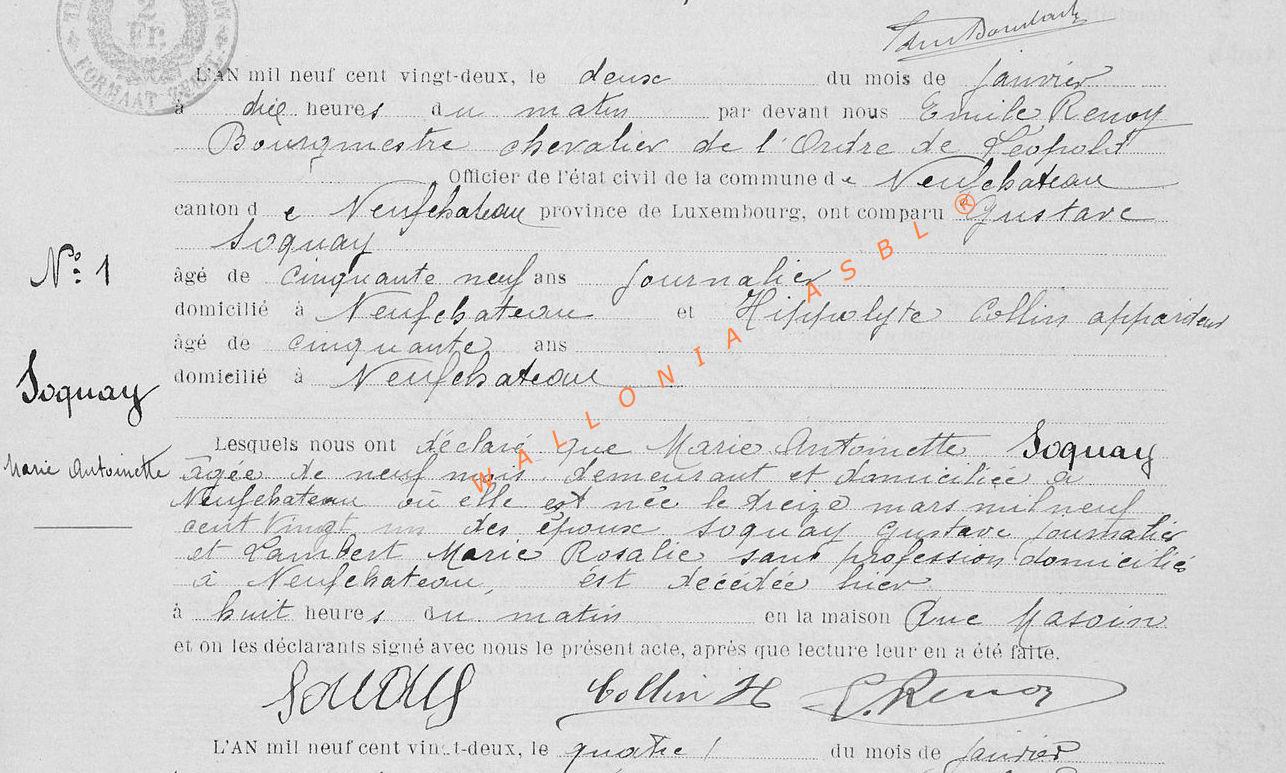 2
Fr.
FORMAAT
L'AN mil neuf cent vingt-deux, le deux du mois de janvier
à dix heures du matin par devant nous Emile Renoy
Bourgmestre chevalier de l'Ordre de Léopold
Officier de l'état civil de la commune de Neufchateau
canton de Neufchateau province de Luxembourg, ont comparu Gustave
Soquay
N° 1
âgé de cinquante neuf ans journalier
domicilié à Neufchateau et Hippolyte Collin appariteur
âgé de cinquante ans
domicilié à Neufchateau
Soquay
Marie Antoinette
Lesquels nous ont déclaré que Marie Antoinette Soquay
âgée de neuf mois demeurant et domiciliée à
Neufchateau où elle est née le treize mars mil neuf
cent vingt un des époux Soquay Gustave journalier
et Lambert Marie Rosalie sans profession domiciliés
à Neufchateau, est décédée hier
à huit heures du matin en la maison Rue Masoin
et on les déclarants signé avec nous le présent acte, après que lecture leur en a été faite.
Soquay Collin H E. Renoy
L'AN mil neuf cent vingt-deux, le quatre du mois de janvier
WALLONIA ASBL ®